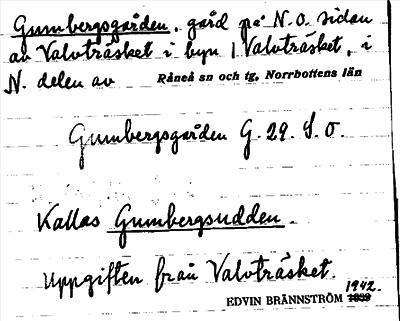 Gumbergsgården, gård på N.O. sidan
av Valvträsket i byn Valvträsket, i
N. delen av Råneå sn och tg, Norrbottens län
Gumbergsgården G. 29. S. O.
Kallas Gumbergsudden.
Uppgiften från Valvträsket.
1942.
EDVIN BRÄNNSTRÖM 1939